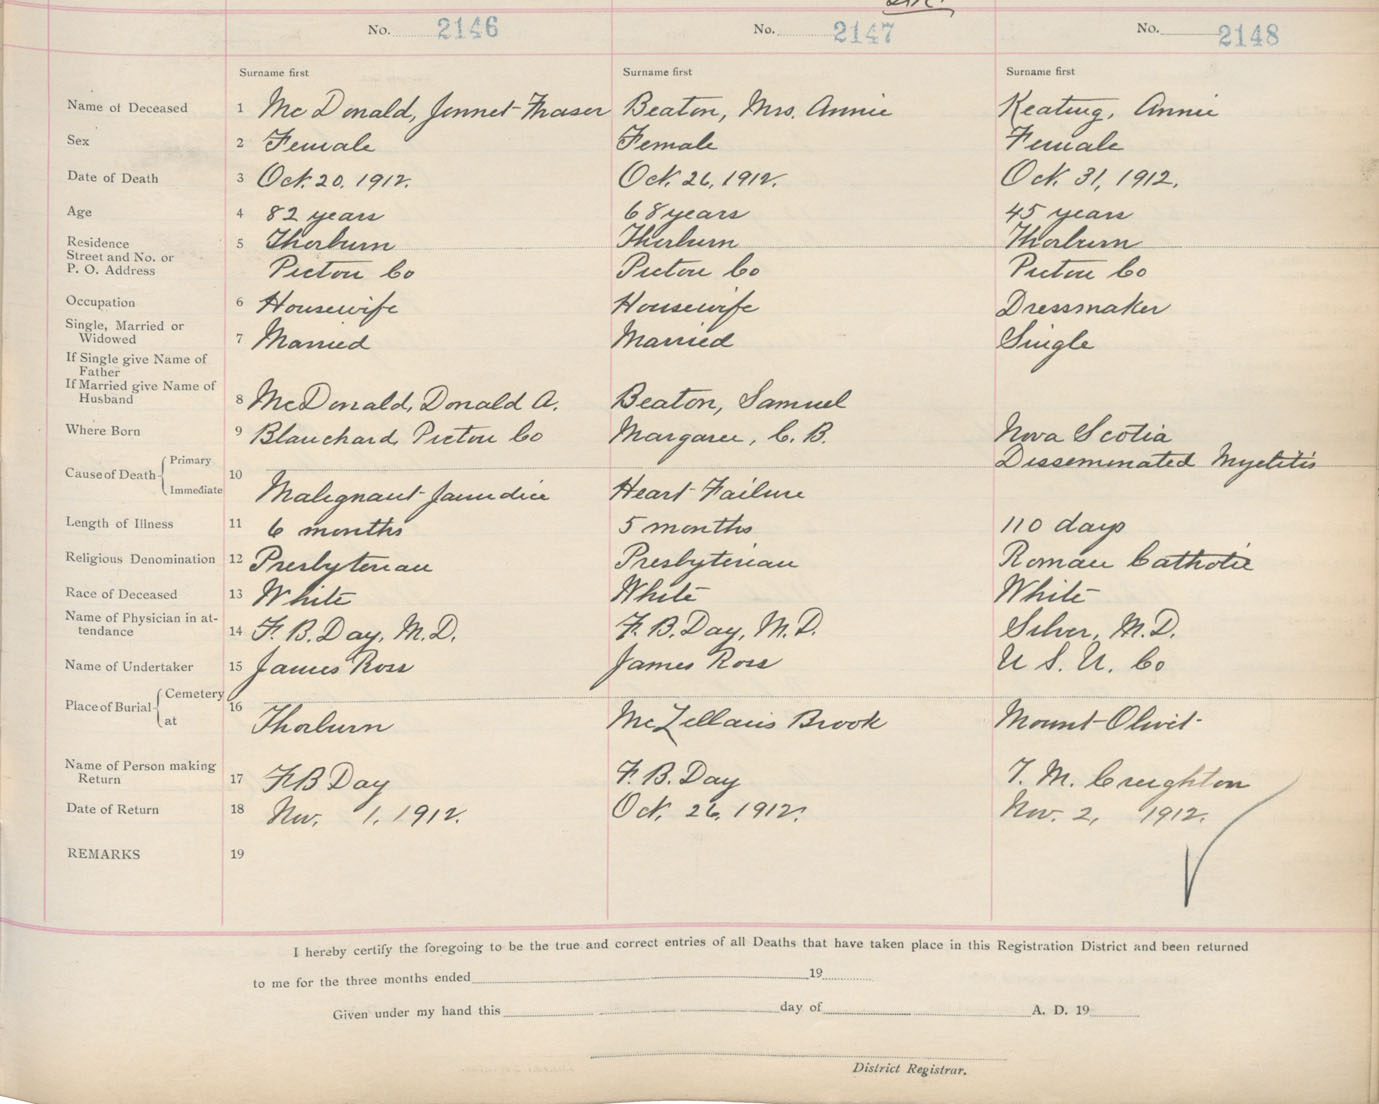 No. 2146 No. 2147 No. 2148
Surname first Surname first Surname first
Name of Deceased 1 McDonald, Jennet Fraser Beaton, Mrs. Annie Keating, Annie
Sex 2 Female Female Female
Date of Death 3 Oct. 20, 1912. Oct. 26, 1912. Oct. 31, 1912.
Age 4 82 years 68 years 45 years
Residence 5 Thorburn Thorburn Thorburn
Street and No. or
P. O. Address Pictou Co Pictou Co Pictou Co
Occupation 6 Housewife Housewife Dressmaker
Single, Married or
Widowed 7 Married Married Single
If Single give Name of
Father
If Married give Name of
Husband 8 McDonald, Donald A. Beaton, Samuel
Where Born 9 Blanchard, Pictou Co Margaree, C. B. Nova Scotia
Cause of Death Primary 10 Disseminated Myelitis
Immediate Malignant Jaundice Heart Failure
Length of Illness 11 6 months 5 months 110 days
Religious Denomination 12 Presbyterian Presbyterian Roman Catholic
Race of Deceased 13 White White White
Name of Physician in at-
tendance 14 F. B. Day, M.D. F. B. Day, M.D. Silver, M.D.
Name of Undertaker 15 James Ross James Ross U S. U. Co
Place of Burial Cemetery 16
at Thorburn McLellan's Brook Mount Olivet
Name of Person making
Return 17 F B Day F. B. Day T. M. Creighton
Date of Return 18 Nov. 1, 1912. Oct. 26, 1912. Nov. 2, 1912.
REMARKS 19
I hereby certify the foregoing to be the true and correct entries of all Deaths that have taken place in this Registration District and been returned
to me for the three months ended 19
Given under my hand this day of A. D. 19
District Registrar.